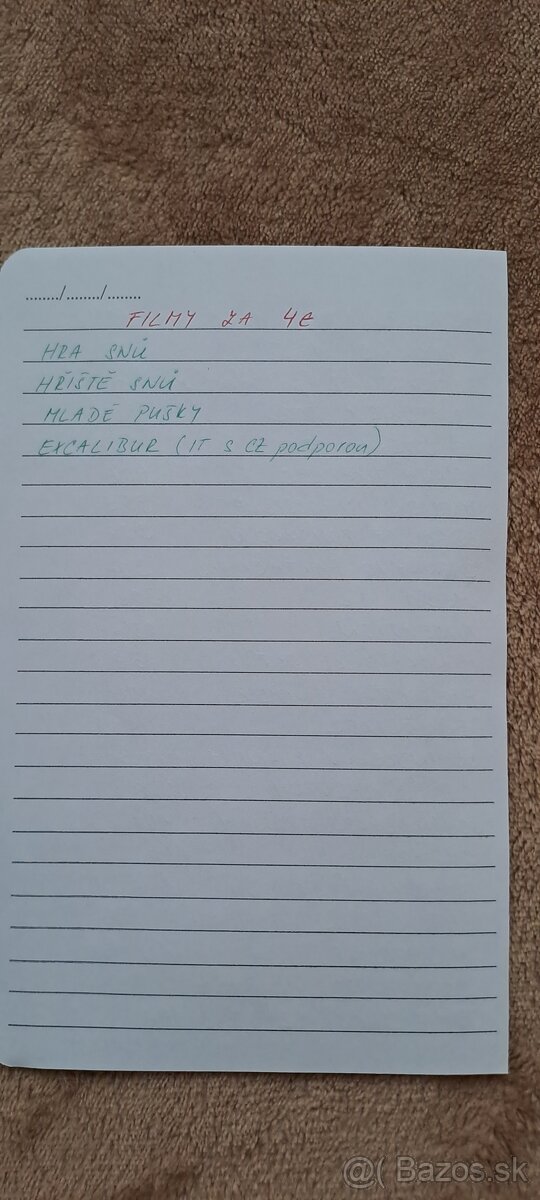 ......../......../........
FILMY ZA 4€
HRA SNŮ
HŘIŠTĚ SNŮ
MLADÉ PUŠKY
EXCALIBUR (IT S CZ podporou)
@( Bazos.sk